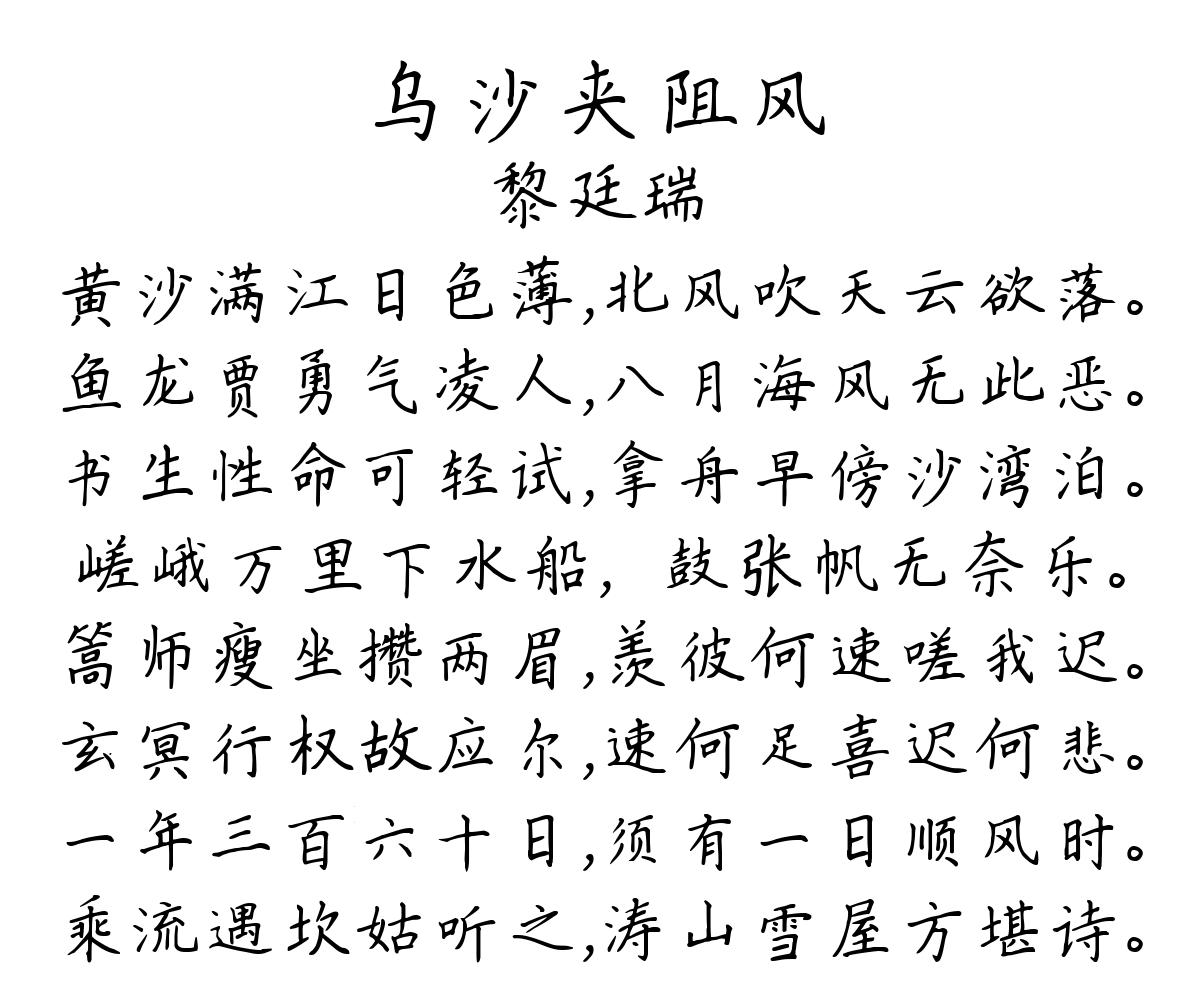 乌沙夹阻风
黎廷瑞
黄沙满江日色薄,北风吹天云欲落。
鱼龙贾勇气凌人,八月海风无此恶。
书生性命可轻试,拿舟早傍沙湾泊。
嵯峨万里下水船,鼓张帆无奈乐。
篙师瘦坐攒两眉,羡彼何速嗟我迟。
玄冥行权故应尔,速何足喜迟何悲。
一年三百六十日,须有一日顺风时。
乘流遇坎姑听之,涛山雪屋方堪诗。